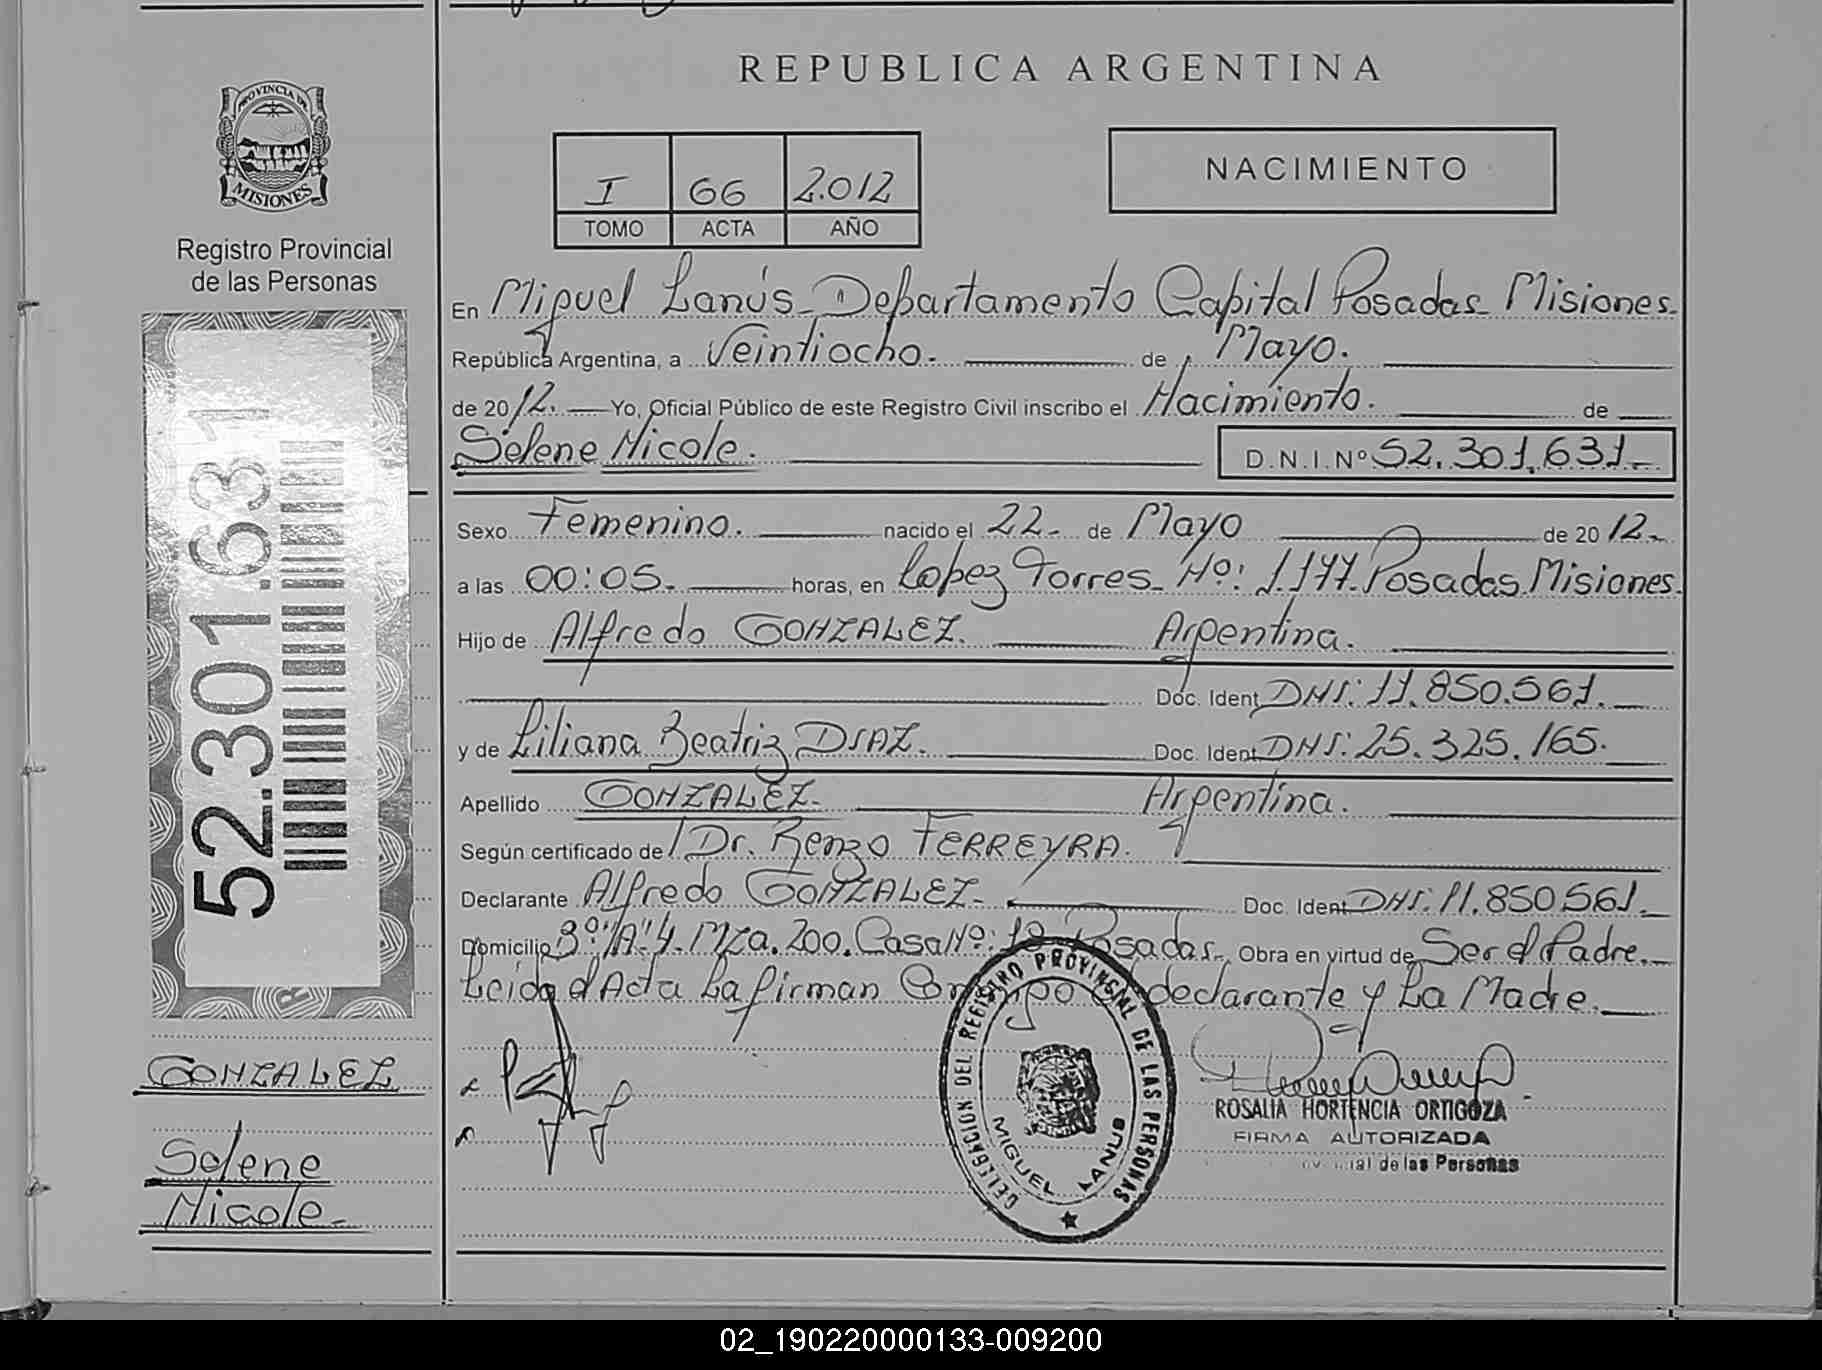 REPUBLICA ARGENTINA
PROVINCIA DE
MISIONES
Registro Provincial
de las Personas
I 66 2.012
TOMO ACTA AÑO
NACIMIENTO
En Miguel Lanús - Departamento Capital Posadas - Misiones.
República Argentina, a Veintiocho. de Mayo.
de 2012. Yo, Oficial Público de este Registro Civil inscribo el Nacimiento. de
Selene Nicole. D.N.I.Nº 52.301.631-
Sexo Femenino. nacido el 22- de Mayo de 2012.
a las 00:05. horas, en Lopez Torres - Nº: 1.177. Posadas Misiones.
Hijo de Alfredo GONZALEZ. Argentina.
Doc. Ident DNI: 11.850.561.
y de Liliana Beatriz DIAZ. Doc. Ident DNI: 25.325.165.
Apellido GONZALEZ. Argentina.
Según certificado de Dr. Renzo FERREYRA.
Declarante Alfredo GONZALEZ. Doc. Ident DNI: 11.850561.
Domicilio Bº: "A"4. Mza. 200. Casa Nº: Posadas. Obra en virtud de Ser el Padre.
Leida el Acta La firman Conmigo el declarante y La Madre.
52.301.631
GONZALEZ
Selene
Nicole.
DELEGACION DEL REGISTRO PROVINCIAL DE LAS PERSONAS
MIGUEL LANUS
ROSALIA HORTENCIA ORTIGOZA
FIRMA AUTORIZADA
de las Personas
02_190220000133-009200